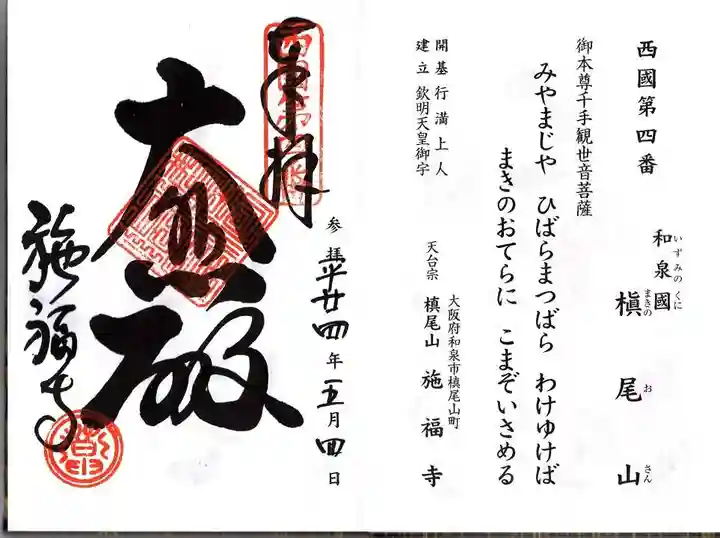 西國第四番
和泉國
いずみの くに
槇尾山
まきの お さん
御本尊千手観世音菩薩
みやまじや ひばらまつばら わけゆけば
まきのおてらに こまぞいさめる
開基 行満上人
建立 欽明天皇御宇
大阪府和泉市槙尾山町
天台宗 槙尾山 施福寺
奉拝
参拝 平廿四年五月四日
大悲殿
施福寺